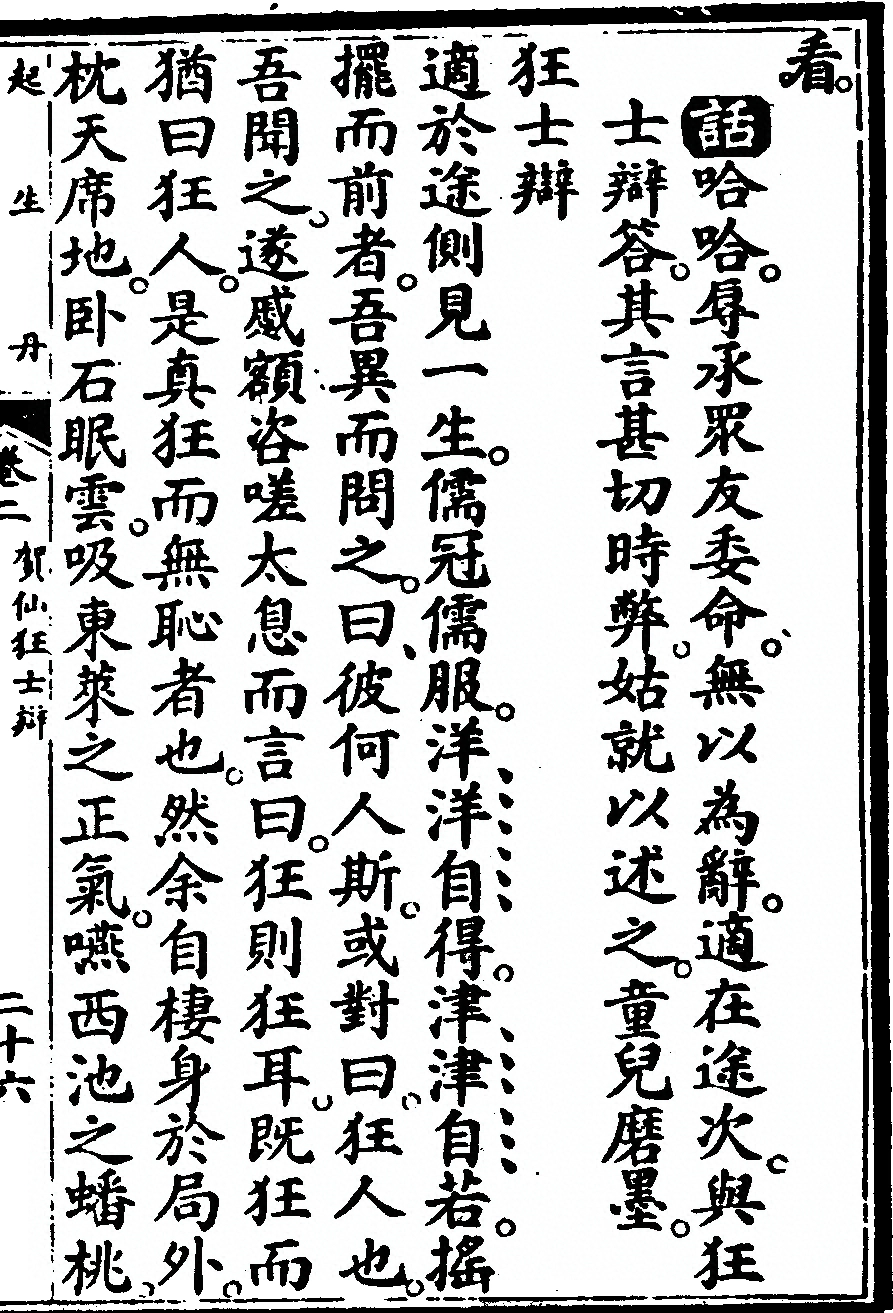 看。
話哈哈。辱承眾友委命。無以為辭。適在途次。與狂
士辯答。其言甚切時弊。姑就以述之。童兒磨墨。
狂士辯
適於途側見一生。儒冠儒服。洋洋自得。津津自若。搖
擺而前者。吾異而問之。曰、彼何人斯。或對曰。狂人也。
吾聞之。遂蹙額咨嗟太息而言曰。狂則狂耳。既狂而
猶曰狂人。是真狂而無恥者也。然余自棲身於局外。
枕天席地。臥石眠雲。吸東萊之正氣。嚥西池之蟠桃、
起生丹 卷二 賀仙狂士辯 二十六